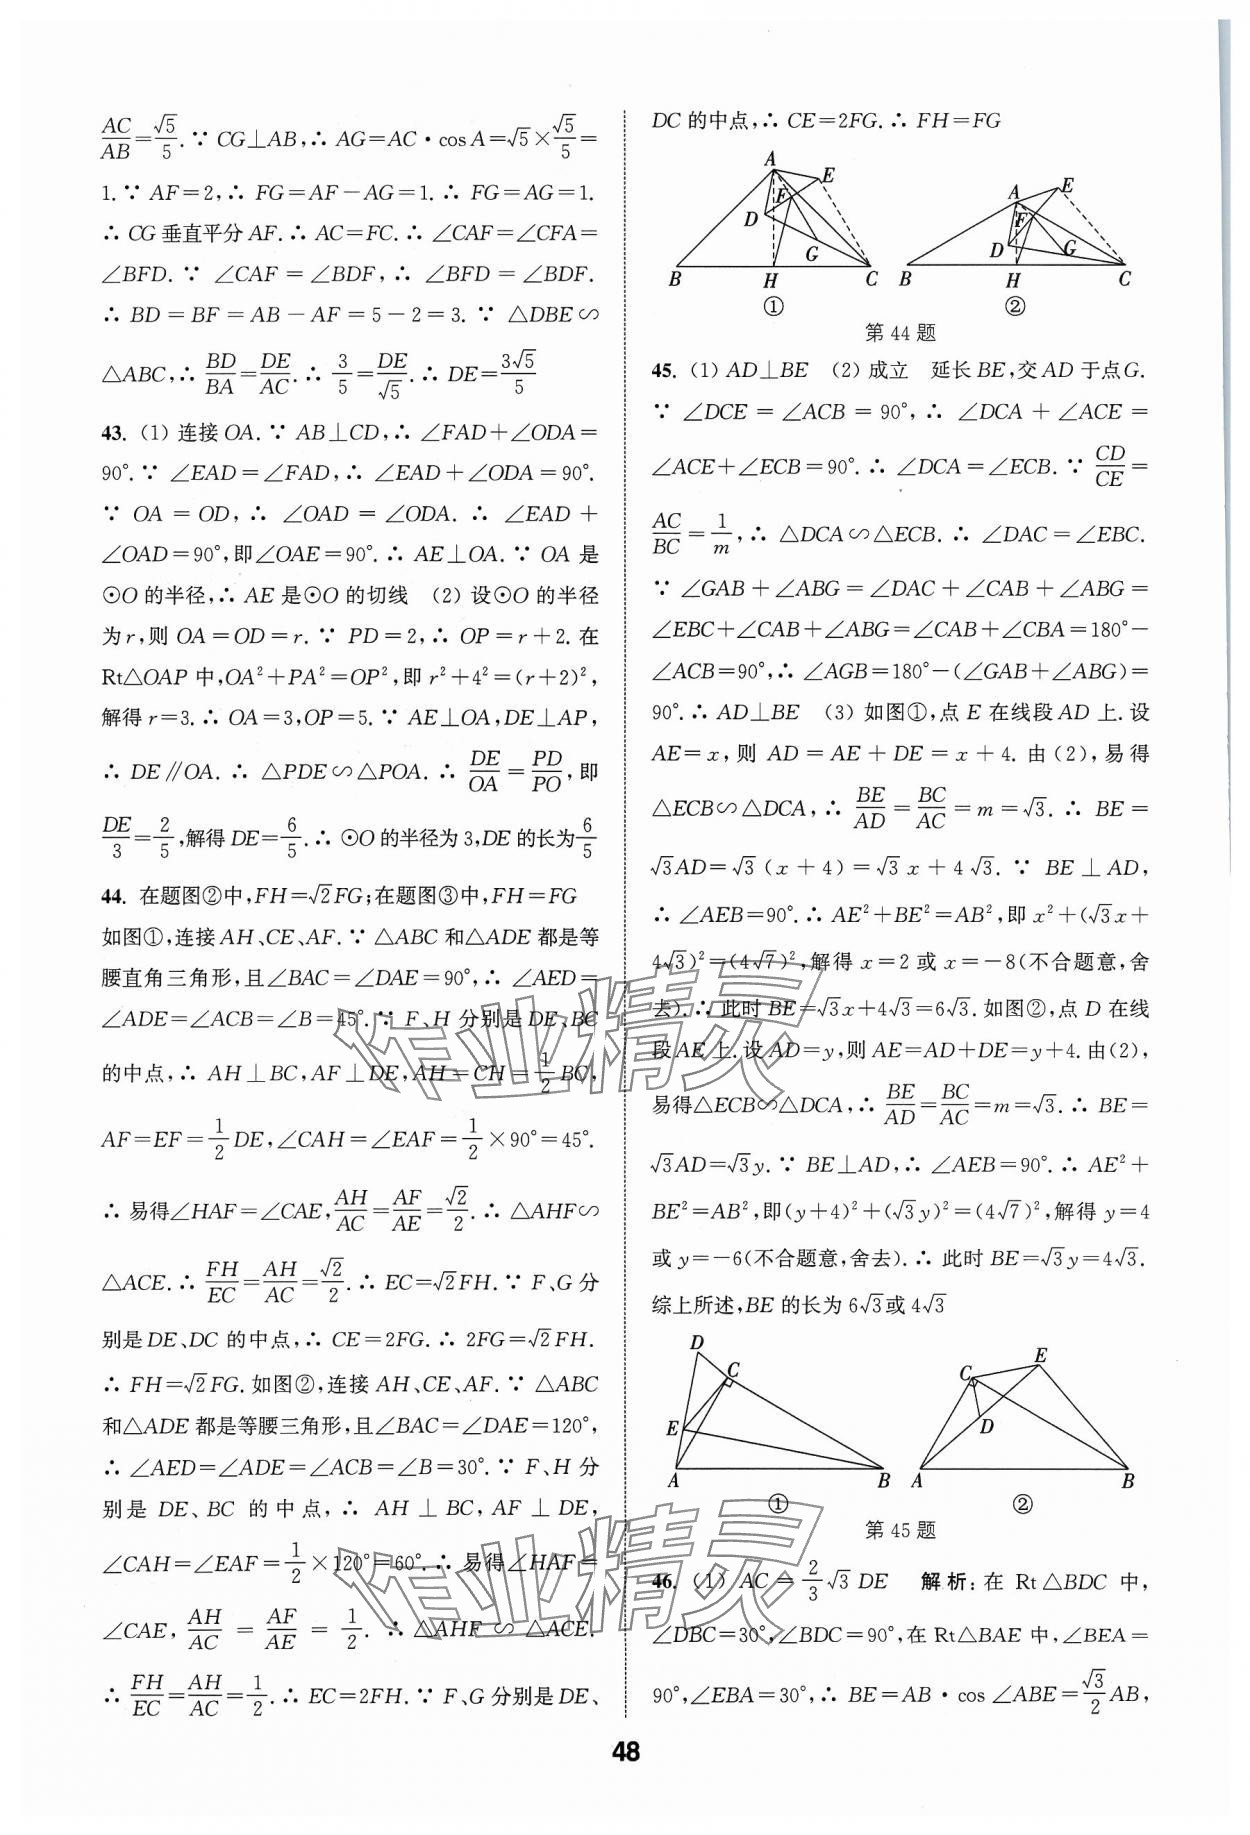 AC/AB=√5/5.∵ CG⊥AB,∴ AG=AC·cos A=√5×√5/5=
1.∵ AF=2,∴ FG=AF-AG=1.∴ FG=AG=1.
∴ CG垂直平分 AF.∴ AC=FC.∴ ∠CAF=∠CFA=
∠BFD.∵ ∠CAF=∠BDF,∴ ∠BFD=∠BDF.
∴ BD=BF=AB-AF=5-2=3.∵ △DBE∽
△ABC,∴ BD/BA=DE/AC.∴ 3/5=DE/√5.∴ DE=3√5/5
43. (1) 连接 OA.∵ AB⊥CD,∴ ∠FAD+∠ODA=
90°.∵ ∠EAD=∠FAD,∴ ∠EAD+∠ODA=90°.
∵ OA=OD,∴ ∠OAD=∠ODA.∴ ∠EAD+
∠OAD=90°,即∠OAE=90°.∴ AE⊥OA.∵ OA 是
⊙O 的半径,∴ AE 是⊙O 的切线 (2) 设⊙O 的半径
为r,则 OA=OD=r.∵ PD=2,∴ OP=r+2.在
Rt△OAP 中,OA²+PA²=OP²,即 r²+4²=(r+2)²,
解得r=3.∴ OA=3,OP=5.∵ AE⊥OA,DE⊥AP,
∴ DE∥OA.∴ △PDE∽△POA.∴ DE/OA=PD/PO,即
DE/3=2/5,解得DE=6/5.∴ ⊙O的半径为3,DE的长为6/5
44. 在题图②中,FH=√2FG;在题图③中,FH=FG
如图①,连接AH、CE、AF.∵ △ABC和△ADE都是等
腰直角三角形,且∠BAC=∠DAE=90°,∴ ∠AED=
∠ADE=∠ACB=∠B=45°.∵ F、H 分别是 DE、BC
的中点,∴ AH⊥BC,AF⊥DE,AH=CH=1/2BC,
AF=EF=1/2DE,∠CAH=∠EAF=1/2×90°=45°.
∴ 易得∠HAF=∠CAE,AH/AC=AF/AE=√2/2.∴ △AHF∽
△ACE.∴ FH/EC=AH/AC=√2/2.∴ EC=√2FH.∵ F、G分
别是DE、DC 的中点,∴ CE=2FG.∴ 2FG=√2FH.
∴ FH=√2FG.如图②,连接AH、CE、AF.∵ △ABC
和△ADE都是等腰三角形,且∠BAC=∠DAE=120°,
∴ ∠AED=∠ADE=∠ACB=∠B=30°.∵ F、H 分
别是 DE、BC 的中点,∴ AH⊥BC,AF⊥DE,
∠CAH=∠EAF=1/2×120°=60°.∴ 易得∠HAF=
∠CAE,AH/AC=AF/AE=1/2.∴ △AHF∽△ACE.
∴ FH/EC=AH/AC=1/2.∴ EC=2FH.∵ F、G分别是DE、
DC 的中点,∴ CE=2FG.∴ FH=FG
A E F D G B H C ①
A E F D G B H C ②
第 44 题
45. (1) AD⊥BE (2) 成立 延长BE,交AD于点G.
∵ ∠DCE=∠ACB=90°,∴ ∠DCA+∠ACE=
∠ACE+∠ECB=90°.∴ ∠DCA=∠ECB.∵ CD/CE=
AC/BC=1/m,∴ △DCA∽△ECB.∴ ∠DAC=∠EBC.
∵ ∠GAB+∠ABG=∠DAC+∠CAB+∠ABG=
∠EBC+∠CAB+∠ABG=∠CAB+∠CBA=180°-
∠ACB=90°,∴ ∠AGB=180°-(∠GAB+∠ABG)=
90°.∴ AD⊥BE (3) 如图①,点 E 在线段AD 上.设
AE=x,则 AD=AE+DE=x+4.由(2),易得
△ECB∽△DCA,∴ BE/AD=BC/AC=m=√3.∴ BE=
√3AD=√3(x+4)=√3x+4√3.∵ BE⊥AD,
∴ ∠AEB=90°.∴ AE²+BE²=AB²,即 x²+(√3x+
4√3)²=(4√7)²,解得 x=2 或 x=-8(不合题意,舍
去).∴ 此时BE=√3x+4√3=6√3.如图②,点D在线
段AE上.设AD=y,则AE=AD+DE=y+4.由(2),
易得△ECB∽△DCA,∴ BE/AD=BC/AC=m=√3.∴ BE=
√3AD=√3y.∵ BE⊥AD,∴ ∠AEB=90°.∴ AE²+
BE²=AB²,即(y+4)²+(√3y)²=(4√7)²,解得y=4
或y=-6(不合题意,舍去).∴ 此时 BE=√3y=4√3.
综上所述,BE 的长为 6√3或4√3
D C E A B ①
C E D A B ②
第 45 题
46. (1) AC=2/3√3DE 解析:在 Rt△BDC 中,
∠DBC=30°,∠BDC=90°,在Rt△BAE中,∠BEA=
90°,∠EBA=30°,∴ BE=AB·cos∠ABE=√3/2AB,
48
作业精灵
作业精灵